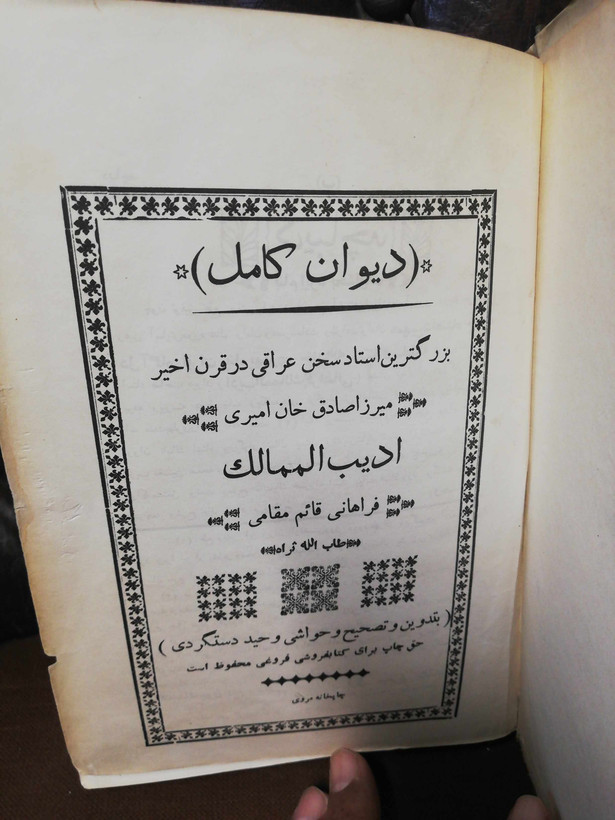 (دیوان کامل)
بزرگترین استاد سخن عراقی در قرن اخیر
میرزا صادق خان امیری
ادیب الممالك
فراهانی قائم مقامی
طاب الله ثراه
(بتدوین و تصحیح و حواشی وحید دستگردی)
حق چاپ برای کتابفروشی فروغی محفوظ است
چاپخانه مروی